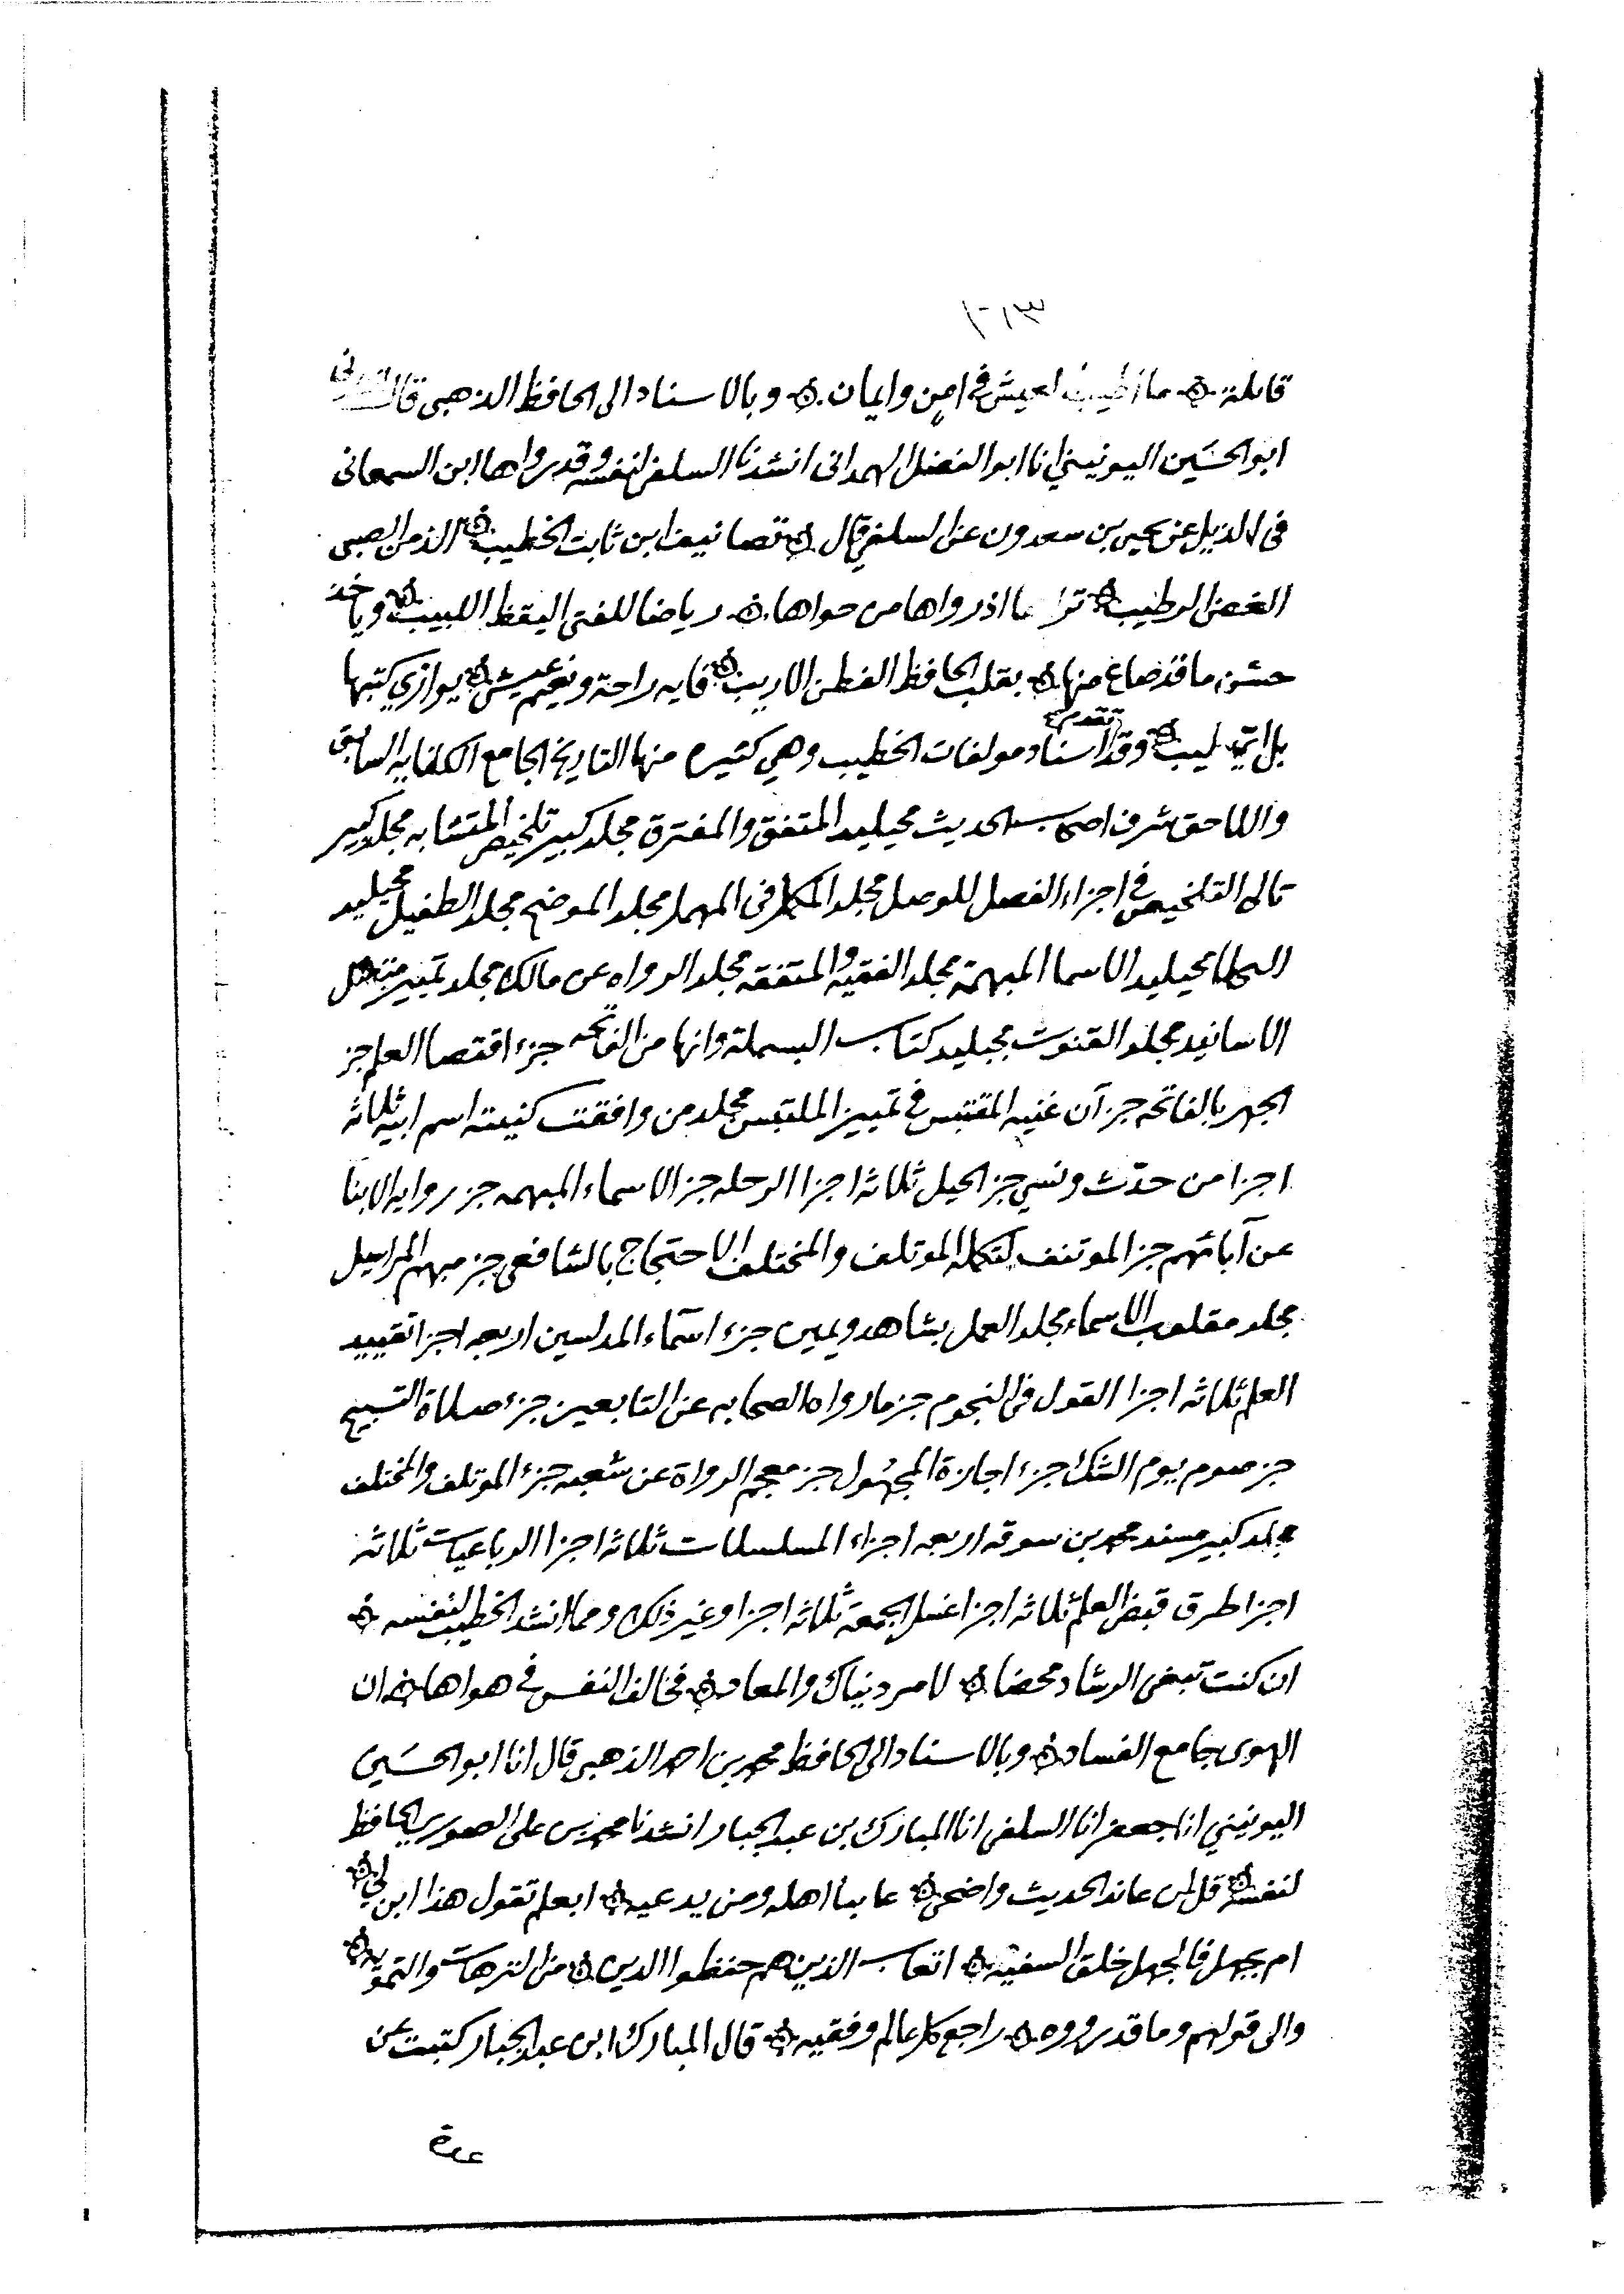 ١٠١٣
قابلة ۞ ما أطيب العيش في امن وايمان ۞ وبالاسناد الى الحافظ الذهبى قال
ابو الحسَين اليونيني انا ابو الفضل الهمدانى انشدنا السلفى لنفسه وقد رواها ابن السمعانى
فى الذيل عن يحيى بن سعدون عن السلفي قال ۞ تصانيف ابن ثابت الخطيب ۞ الذ من الصبى
الغض الرطيب ۞ تراها اذ رواها من حواها ۞ رياضا للفتى اليقظ اللبيب ۞ وياخذ
حسن ما قد صاع منها ۞ بقلب الحافظ الفطن الاريب ۞ فايه راحة ونعيم عيش ۞ يوازي كتبها
بل اي طيب ۞ وقد تقدم اسناد مولفات الخطيب وهي كثيره منها التاريخ الجامع الكفايه السابق
واللاحق شرف اصحاب الحديث مجيليد المتفق والمفترق مجلد كبير تلخيص المتشابه مجلد كبير
تالى التلخيص في اجزاء الفصل للوصل مجلد المكمل فى المهمل مجلد الموضح مجلد الطفيل مجيليد
البخلا مجيليد الاسما المبهمة مجلد الفقيه والمتفقه مجلد الرواه عن مالك مجلد تمييز متصل
الاسانيد مجلد القنوت مجيليد كتاب البسملة وانها من الفاتحه جزء اقتصا العلم جز
الجهر بالفاتحه جزآن غنيه المقتبس في تمييز الملتبس مجلد من وافقت كنيته اسم ابيه ثلاثه
اجزا من حدّث ونسي جز الحيل ثلاثه اجزا الرحله جز الاسماء المبهمه جز روايه الابنا
عن آبائهم جز الموتنف لتكمله الموتلف والمختلف الاحتجاج بالشافعى جز مبهم المراسيل
مجلد مقلوب الاسماء مجلد العمل بشاهد ويمين جزء اسمآء المدلسين اربعه اجزا تقييد
العلم ثلاثه اجزا القول فى النجوم جز ما رواه الصحابه عن التابعين جزء صلاة التسبيح
جز صوم يوم الشك جزء اجازة المجهُول جز معجم الرواة عن شعبه جزء الموتلف والمختلف
مجلد كبير مسند محمد بن سوقه اربعه اجزاء المسلسلات ثلاثه اجزا الرباعيات ثلاثه
اجزا طرق قبض العلم ثلاثه اجزا غسل الجمعة ثلاثه اجزا وغير ذلك ومما انشد الخطيب لنفسه ۞
ان كنت تبغى الرشاد محضا ۞ لامر دنياك والمعاد ۞ فخالف النفس في هواها ۞ ان
الهوى جامع الفساد ۞ وبالاسناد الى الحافظ محمد بن احمد الذهبى قال انا ابو الحسَين
اليونيني انا جعفر انا السلفى انا المبارك بن عبد الجبار انشدنا محمد بن على الصوري الحافظ
لنفسه ۞ قل لمن عاند الحديث واضحى ۞ عايبا اهله ومن يدعيه ۞ ابعلم تقول هذا ابن لي ۞
ام بجهل فالجهل خلق السفيه ۞ اتعاب الذين هم حفظوا الدين ۞ من الترهات والتمويه ۞
والى قولهم وما قد رووه ۞ راجع كل عالم وفقيه ۞ قال المبارك ابن عبد الجبار كتبت عن
عدة